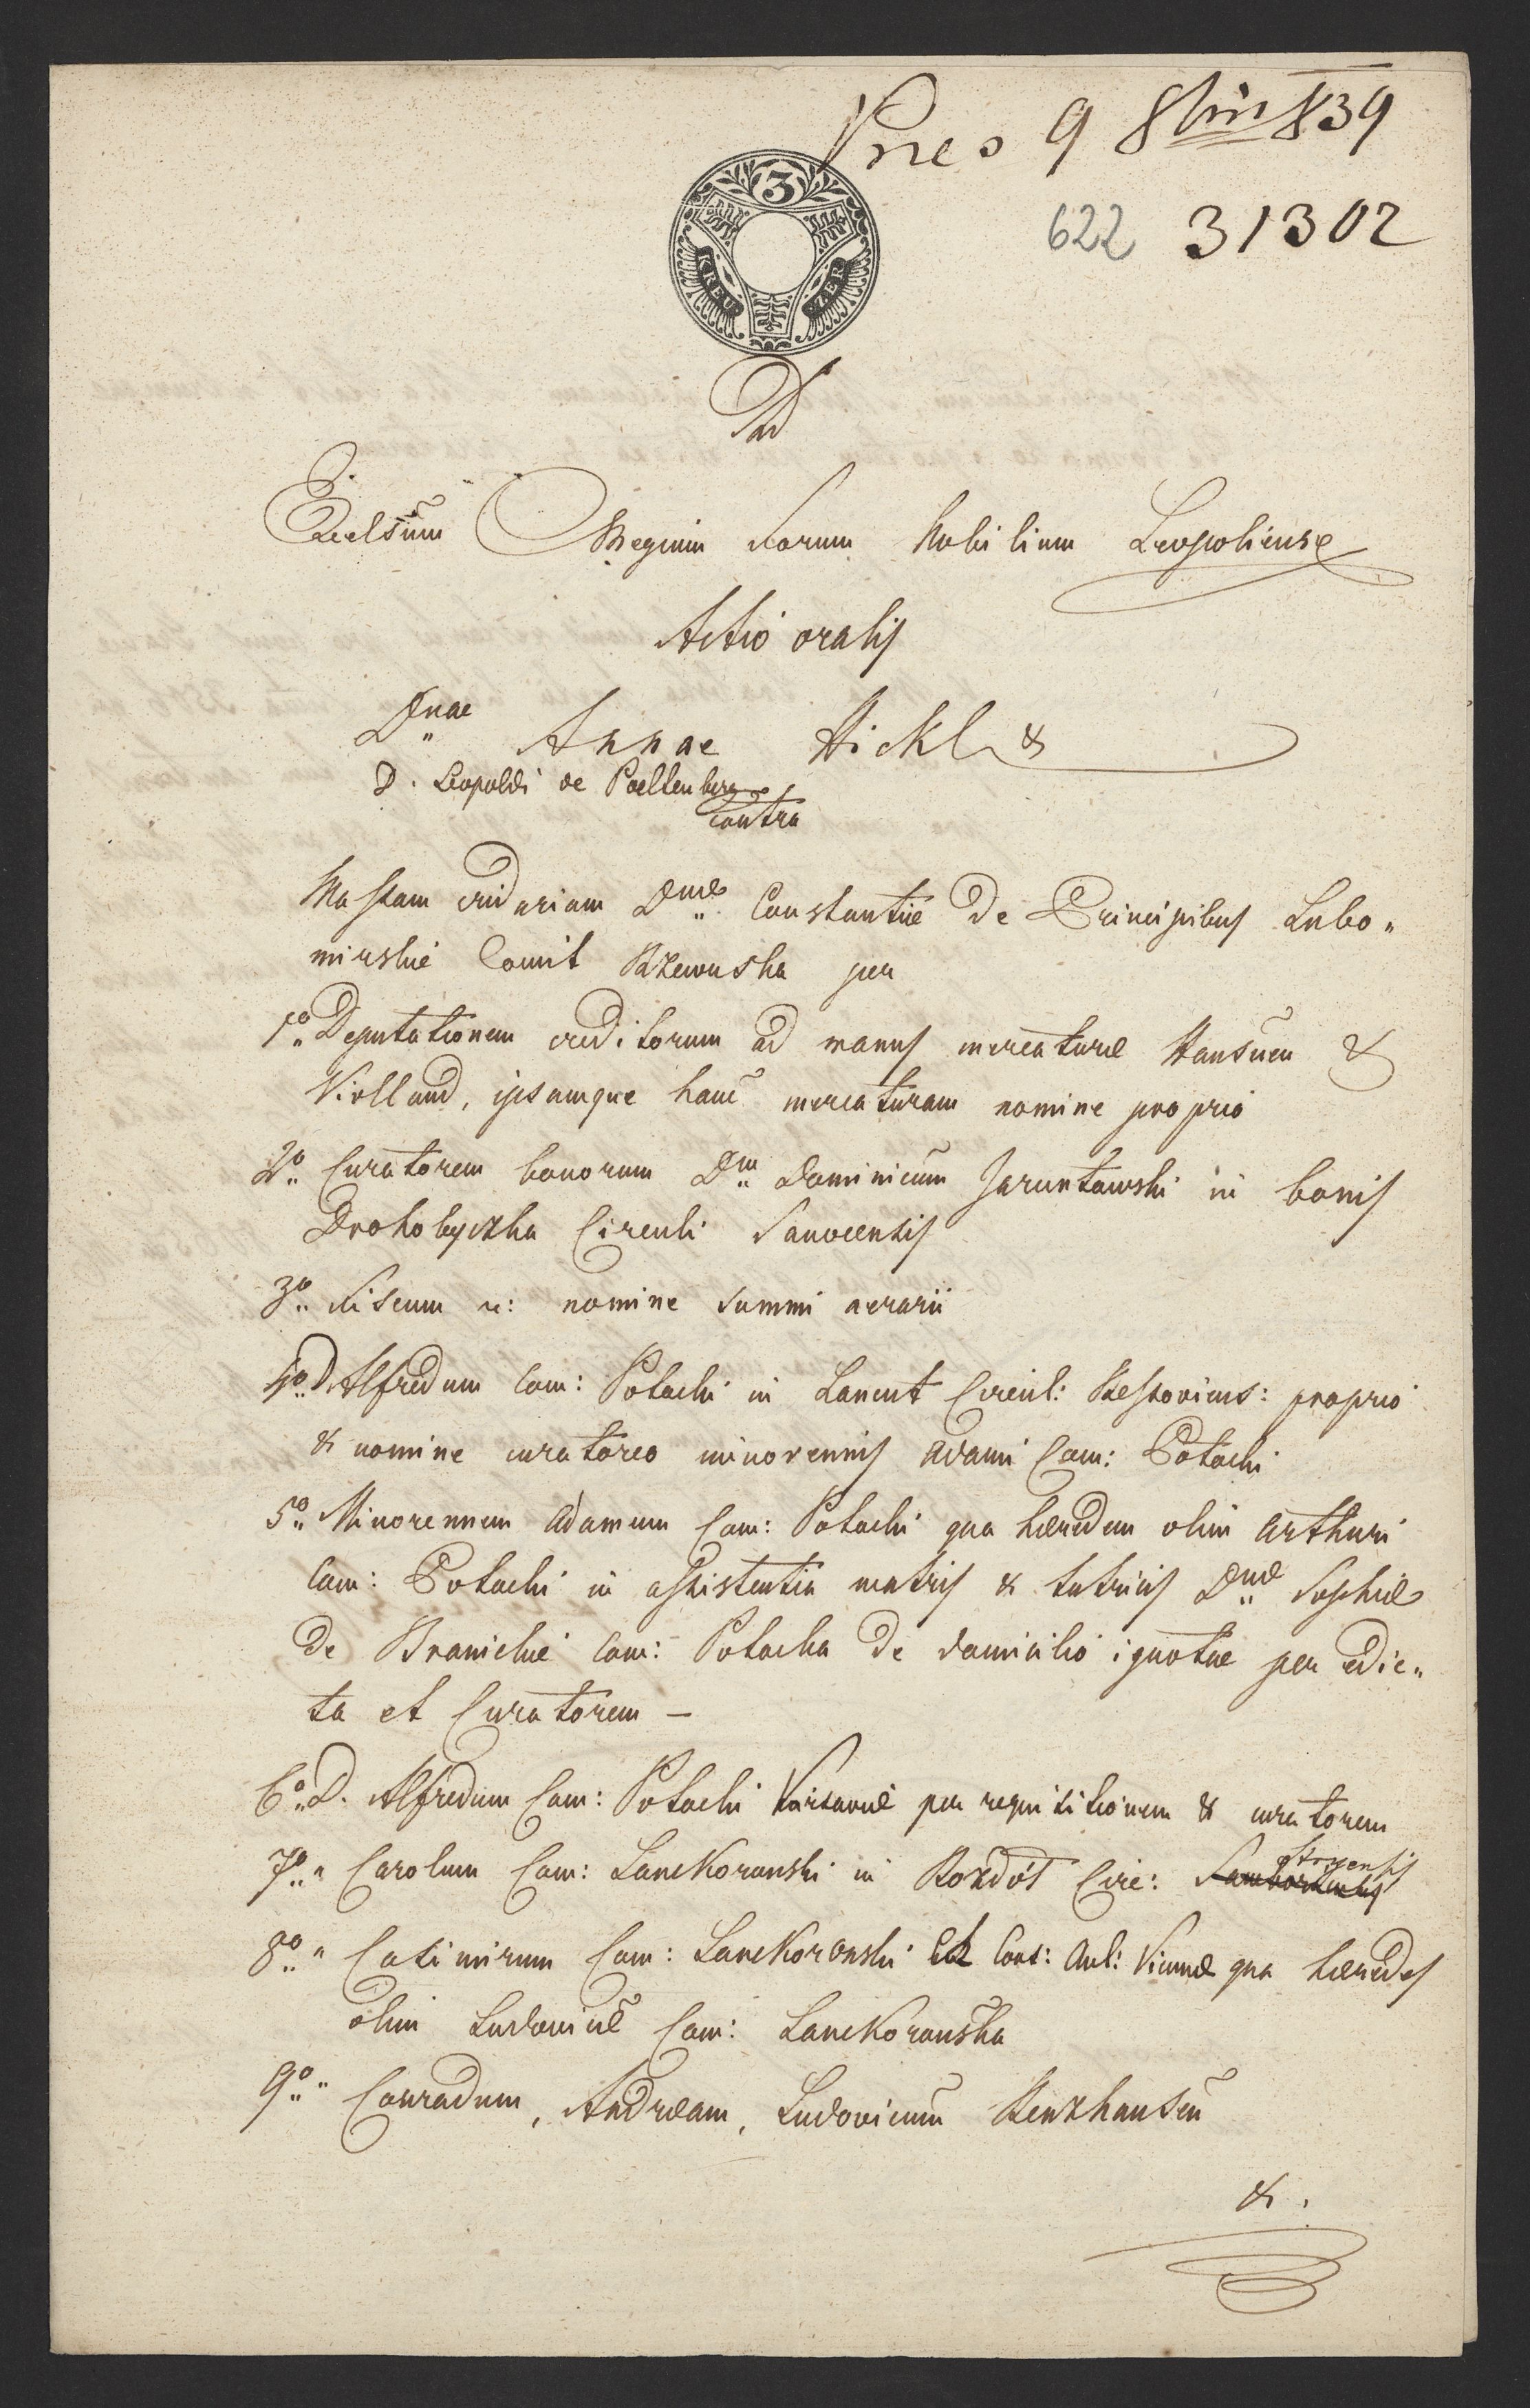 Pres 9 8bris 839
622 31302
3
KREU ZER
Ad
Excelsum Regium Forum Nobilium Leopoliense
Actio oralis
Dnae Annae Hickl &
D. Leopoldi de Poeltenberg
contra
Massam cridariam Dnae Constantiae de Principibus Lubo„
mirskie Comit Rzewuska per
1o Deputationem creditorum ad manus mercaturae Hausner &
Violland, ipsamque hanc mercaturam nomine proprio
2o Curatorem bonorum Dm Dominicum Jaruntowski in bonis
Drohobyczka Circuli Sanocensis
3o Fiscum r: nomine summi aerarii
4o D. Alfredum Com: Potocki in Lancut Circul: Ressoviens: proprio
& nomine curatoreo minorennis Adami Com: Potocki
5o Minorennem Adamum Com: Potocki qua haeredem olim Arthuri
Com: Potocki in assistentia matris & tutricis Dnae Sophiae
de Branickie Com: Potocka de domicilio ignotae per edic„
ta et Curatorem –
6o D. Alfredum Com: Potocki Varsaviae per requisitionem & curatorem
7o „ Carolum Com: Lanckoronski in Rozdół Circ: Samboriensis Stryensis
8o „ Casimirum Com: Lanckoronski Cons: Aul: Viennae qua haeredes
olim Ludovicae Com: Lanckorońska
9o „ Conradum, Andraeam, Ludovicum Renzhausen
&.